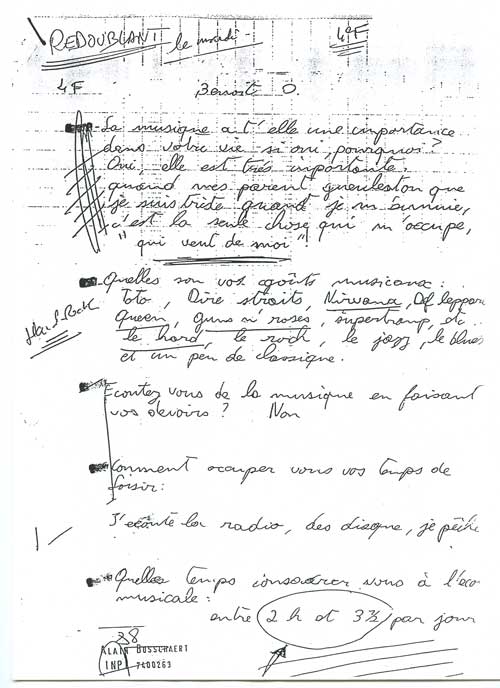 REDOUBLANT le mardi 4°F
4F Benoit O.
La musique a t'elle une importance
dans votre vie si oui, pourquoi?
Oui, elle est très importante,
quand mes parent gueuleston que
je suis triste quand je m'ennuie,
c'est la seule chose qui m'occupe,
"qui veut de moi"!
Quelles son vos goûts musicaux:
Toto, Dire straits, Nirvana, Def leppar
Queen, guns n' roses, supertramp, etc
le hard, le rock, le jazz, le blues
et un peu de classique.
Hard Rock
Ecoutez vous de la musique en faisant
vos devoirs? Non
Comment occuper vous vos temps de
loisir:
J'écoute la radio, des disque, je pêche
Quelles temps consacrer vous à l'éco
musicale:
entre 2 h et 3 ½ par jour
28
ALAIN BOSSCHAERT
INP 7400263